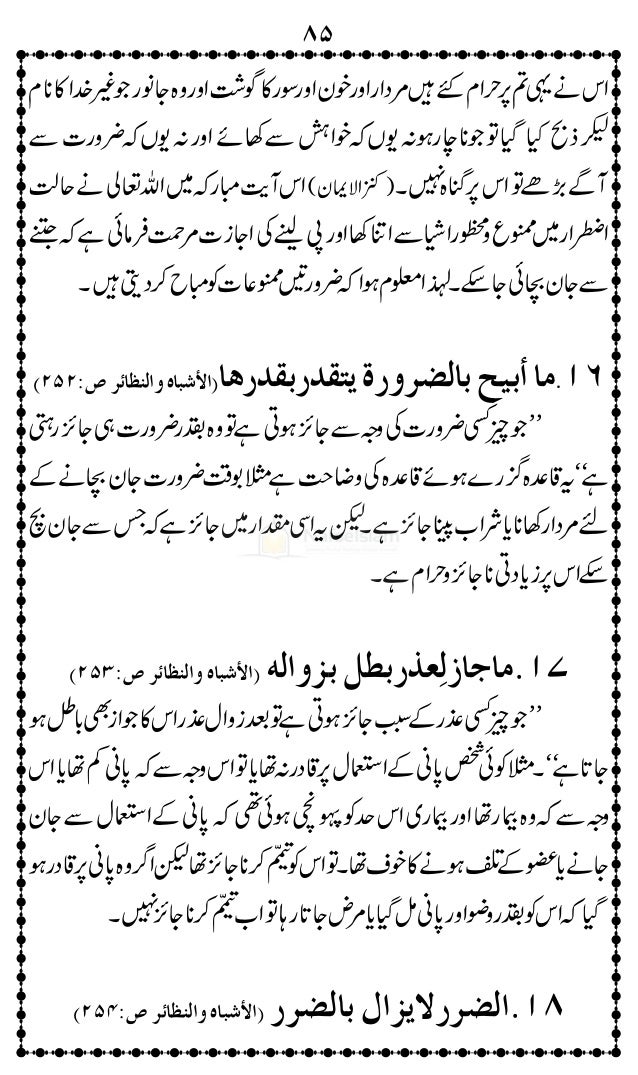 ۸۵
اس نے یہی تم پر حرام کئے ہیں مردار اور خون اور سور کا گوشت اور وہ جانور جو غیر خدا کا نام
لیکر ذبح کیا گیا تو جو ناچار ہو نہ یوں کہ خواہش سے کھائے اور نہ یوں کہ ضرورت سے
آگے بڑھے تو اس پر گناہ نہیں۔(کنزالایمان) اس آیت مبارکہ میں اللہ تعالی نے حالت
اضطرار میں ممنوع و محظور اشیا سے اتنا کھا اور پی لینے کی اجازت مرحمت فرمائی ہے کہ جتنے
سے جان بچائی جا سکے۔ لہذا معلوم ہوا کہ ضرورتیں ممنوعات کو مباح کردیتی ہیں۔
۱۶.ما أبيح بالضرورة يتقدر بقدرها (الأشباه والنظائر ص:۲۵۲)
’’جو چیز کسی ضرورت کی وجہ سے جائز ہوتی ہے تو وہ بقدر ضرورت ہی جائز رہتی
ہے‘‘ یہ قاعدہ گزرے ہوئے قاعدہ کی وضاحت ہے مثلا بوقت ضرورت جان بچانے کے
لئے مردار کھانا یا شراب پینا جائز ہے۔ لیکن یہ اسی مقدار میں جائز ہے کہ جس سے جان بچ
سکے اس پر زیادتی ناجائز و حرام ہے۔
۱۷.ماجاز لِعذر بطل بزواله (الأشباه والنظائر ص:۲۵۳)
’’جو چیز کسی عذر کے سبب جائز ہوتی ہے تو بعد زوال عذر اس کا جواز بھی باطل ہو
جاتا ہے‘‘۔ مثلا کوئی شخص پانی کے استعمال پر قادر نہ تھا یا تو اس وجہ سے کہ پانی کم تھا یا اس
وجہ سے کہ وہ بیمار تھا اور بیماری اس حد کو پہونچی ہوئی تھی کہ پانی کے استعمال سے جان
جانے یا عضو کے تلف ہونے کا خوف تھا۔ تو اس کو تیمّم کرنا جائز تھا لیکن اگر وہ پانی پر قادر ہو
گیا کہ اس کو بقدر وضو اور پانی مل گیا یا مرض جاتا رہا تو اب تیمّم کرنا جائز نہیں۔
۱۸.الضرر لايزال بالضرر (الأشباه والنظائر ص:۲۵۴)